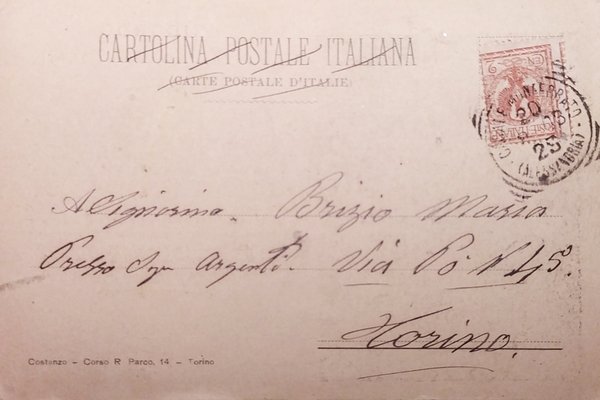 CARTOLINA POSTALE ITALIANA
(CARTE POSTALE D'ITALIE)
CENT 2
POSTE ITALIANE
CASALE MONFERRATO
(ALESSANDRIA)
25
A Signorina Brizio Maria
Presso Sigr Argentò. Via Po N 45.
Torino.
Costanzo – Corso R. Parco, 14 – Torino